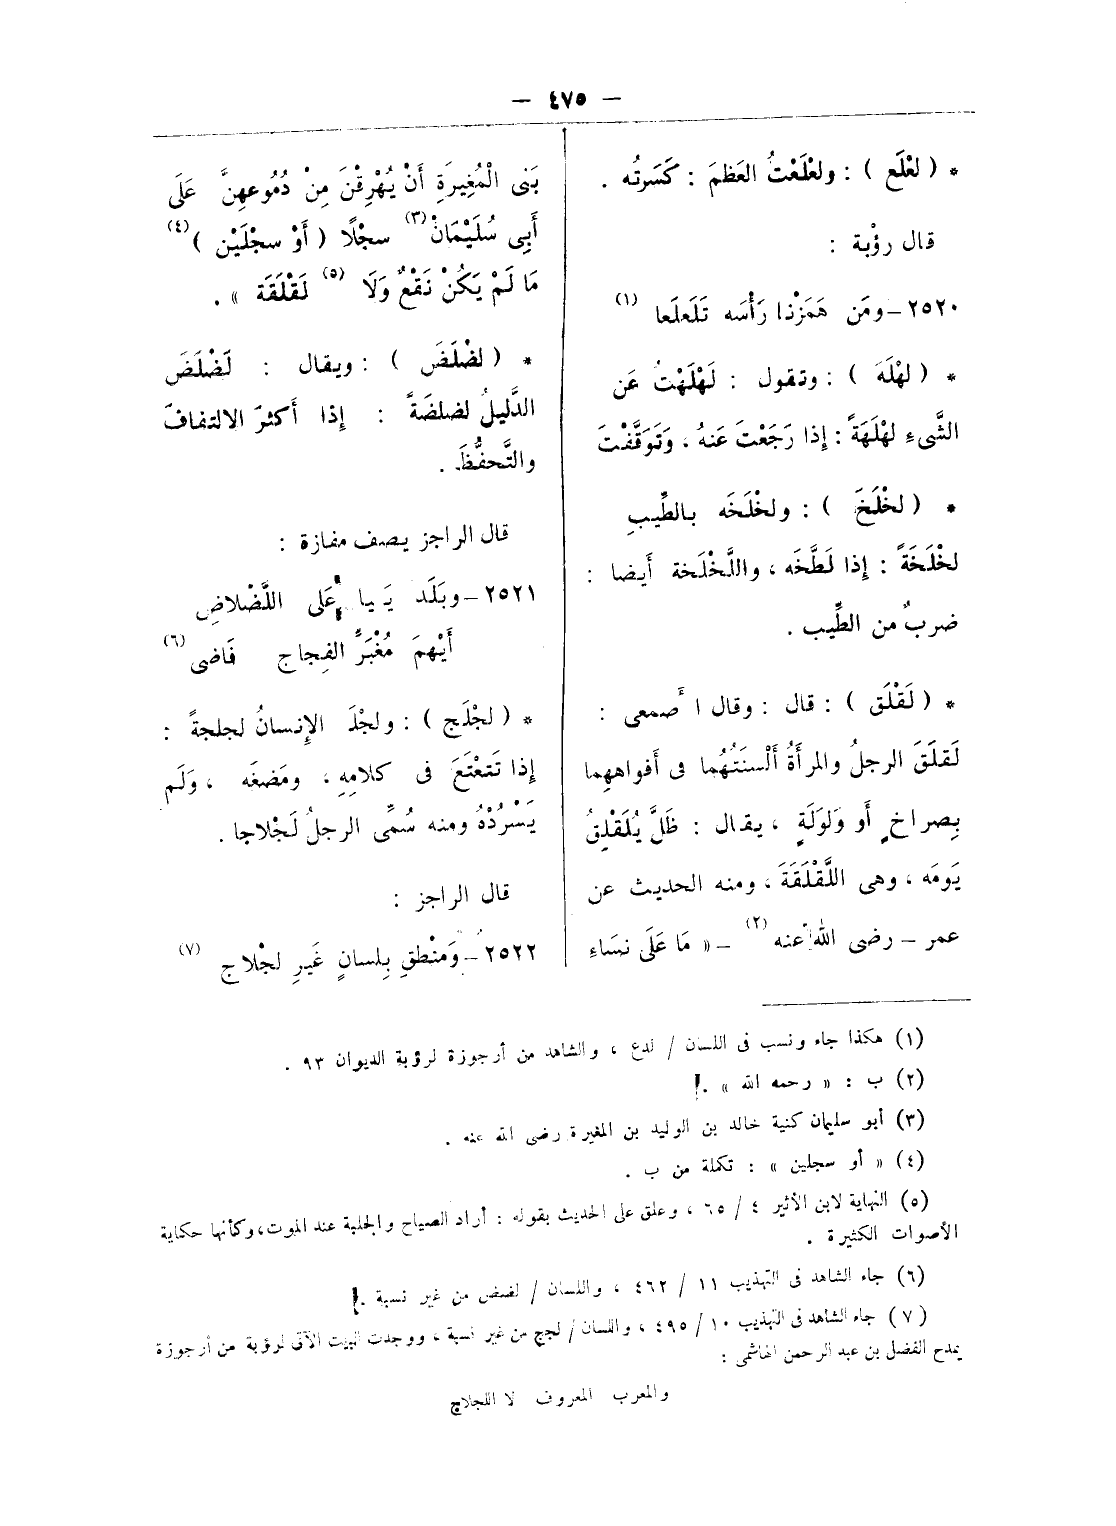 — ٤٧٥ —
* ( لعْلَع ) : ولعْلَعْتُ العَظمَ : كَسَرتُه .
قال رؤبة :
٢٥٢٠ – ومَن هَمَزْنا رَأْسَه تَلَعلَعا (١)
* ( لهْلَهَ ) : وتقول : لَهْلَهْتُ عَن
الشَّىءِ لهْلَهَةً : إذا رَجَعْتَ عَنهُ ، وَتَوَقَّفْتَ
* ( لخْلَخَ ) : ولخْلَخَه بالطِّيبِ
لخْلَخَةً : إذا لَطَّخَه ، واللَّخْلَخة أَيضا :
ضربٌ من الطِّيب .
* ( لَقْلَق ) : قال : وقال ا صمعى :
لَقلَقَ الرجلُ والمرأَةُ أَلْسنَتُهُما فى أفواههِما
بِصراخٍ أَو وَلوَلَةٍ ، يقال : ظَلَّ يُلَقْلِقُ
يَومَه ، وهى اللَّقْلَقَةَ ، ومنه الحديث عن
عمر – رضى الله عنه (٢) – « مَا عَلَى نسَاءِ
بَنى الْمُغِيرَةِ أَنْ يُهْرِقْنَ مِنْ دُمُوعهِنَّ عَلَى
أَبِى سُلَيْمَانَ (٣) سجْلًا ( أَوْ سجْلَيْن ) (٤)
مَا لَمْ يَكُنْ نَقْعٌ وَلَا (٥) لَقْلَقَة » .
* ( لضْلَضَ ) : ويقال : لَضْلَضَ
الدَّليلُ لضلضَةً : إذا أَكثرَ الالتفافَ
والتَّحفُّظَ .
قال الراجز يصف مفازة :
٢٥٢١ – وبَلَد يَـيا عَلى اللَّضْلاضِ
أَيْهمَ مُغْبَرِّ الفِجاج فَاضى (٦)
* ( لجْلَج ) : ولجْلَ الإنسانُ لجلجةً :
إذا تَتعْتَعَ فى كلامِهِ ، ومَضغَه ، وَلَم
يَسْرُدْهُ ومنه سُمِّى الرجلُ لَجْلاجا .
قال الراجز :
٢٥٢٢ – وَمَنْطقِ بِلسانٍ غَيرِ لجْلاج (٧)
(١) هكذا جاء ونسب فى اللسان / لدع ، والشاهد من أرجوزة لرؤبة الديوان ٩٣ .
(٢) ب : « رحمه الله » .
(٣) أبو سليمان كنية خالد بن الوليد بن المغيرة رضى الله عنه .
(٤) « أو سجلين » : تكملة من ب .
(٥) النهاية لابن الأثير ٤ / ٦٥ ، وعلق على الحديث بقوله : أراد الصياح والجلبة عند الموت، وكأنها حكاية
الأصوات الكثيرة .
(٦) جاء الشاهد فى التهذيب ١١ / ٤٦٢ ، واللسان / لضض من غير نسبة .
(٧) جاء الشاهد فى التهذيب ١٠ / ٤٩٥ ، واللسان / لجج من غير نسبة ، ووجدت البيت الآتى لرؤبة من أرجوزة
يمدح الفضل بن عبد الرحمن الهاشمى :
والمعرب المعروف لا اللجلاج